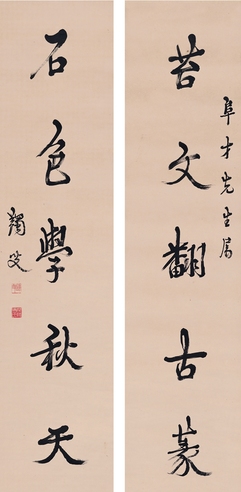 阜才先生属
苔文翻古篆
石色學秋天
獨叟